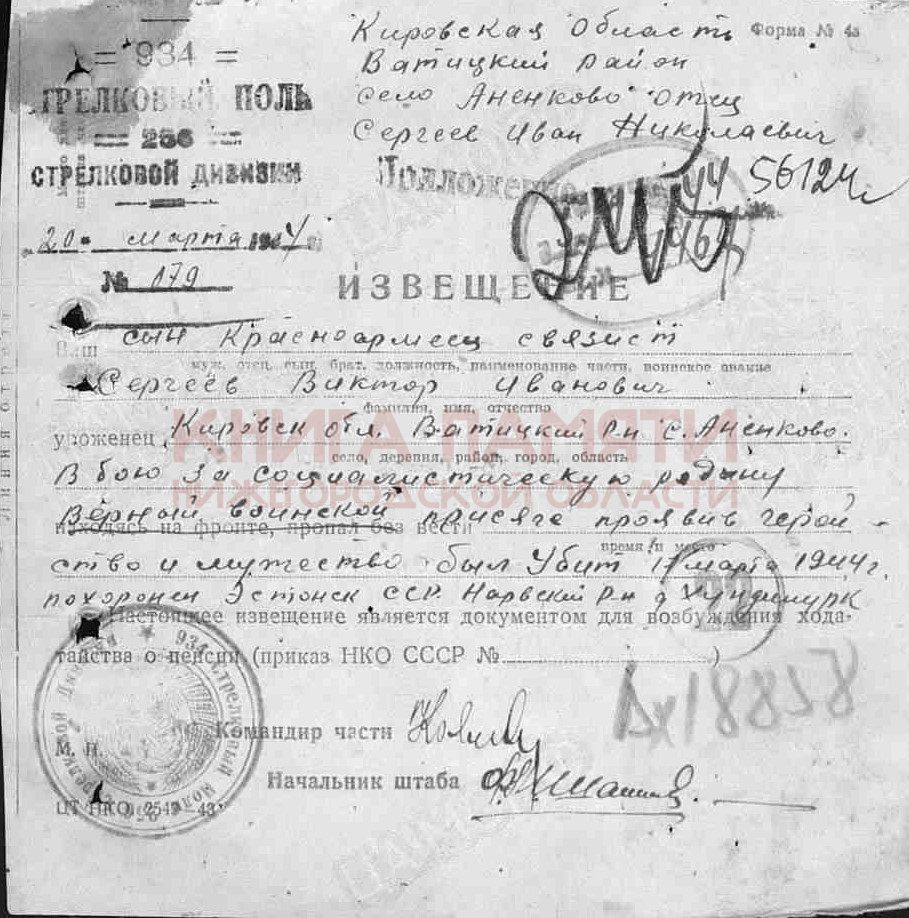 = 934 =
СТРЕЛКОВЫЙ ПОЛК
== 256 ==
СТРЕЛКОВОЙ ДИВИЗИИ
20 марта 1944
№ 079
Форма № 4а
Кировская Область
Ватицкий район
село Аненково отец
Сергеев Иван Николаевич
56124
ИЗВЕЩЕНИЕ
Ваш сын Красноармеец связист
муж, отец, сын, брат, должность, наименование части, воинское звание
Сергеев Виктор Иванович
фамилия, имя, отчество
уроженец Кировск обл. Ватицкий р-н с. Аненково.
село, деревня, район, город, область
В бою за социалистическую родину
Верный воинской присяге проявив герой-
находясь на фронте, пропал без вести
время и место
ство и мужество был Убит 17 марта 1944 г.
похоронен Эстонск ССР. Нарвский р-н д Хундинурк
Настоящее извещение является документом для возбуждения хода-
тайства о пенсии (приказ НКО СССР № )
22
Командир части
М. П.
Начальник штаба
ЦТ НКО 2542—43
934 Стрелковый Полк
КНИГА ПАМЯТИ
НИЖЕГОРОДСКОЙ ОБЛАСТИ